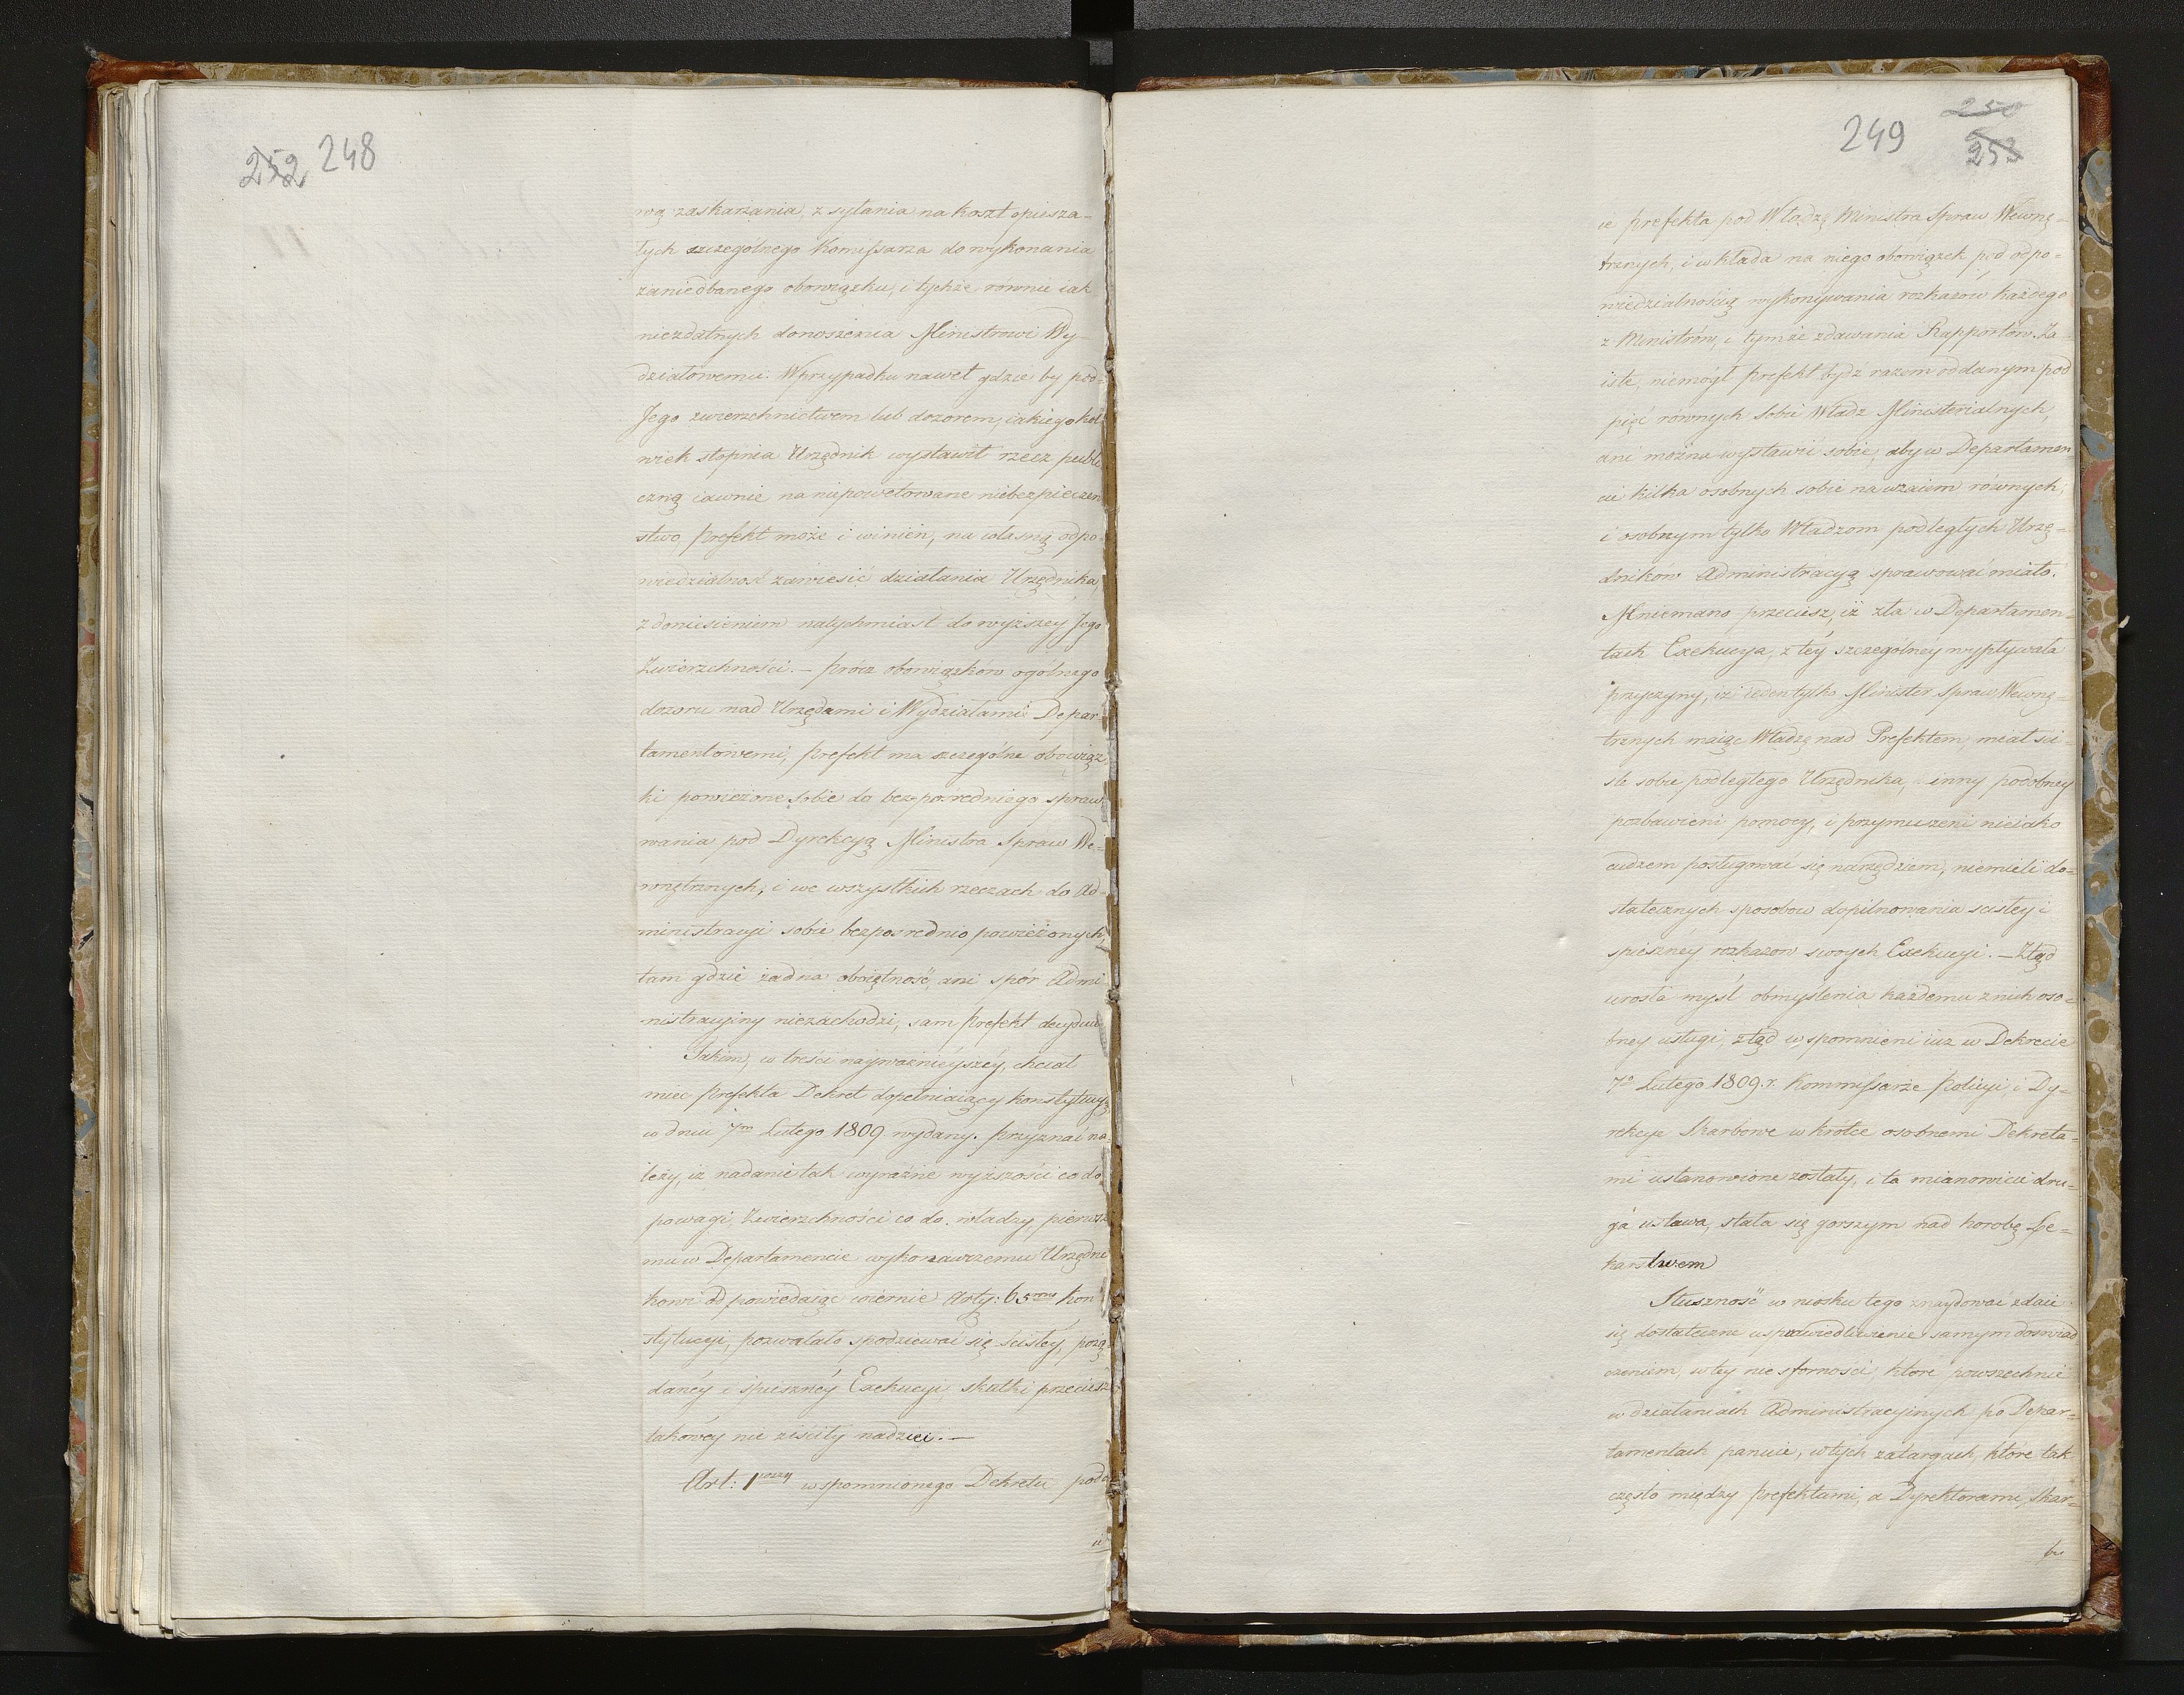 252 248
wą zaskarżania, z syłania na koszt opiesza-
łych szczególnego Komissarza do wykonania
zaniedbanego obowiązku, i tychże równie iak
niezdatnych donoszenia Ministrowi Wy-
działowemu. W przypadku nawet gdzie by pod-
Jego zwierzchnictwem lub dozorem, iakiegokol
wiek stopnia Urzędnik wystawił rzecz publi
czną iawnie na niepowetowane niebezpieczeń
stwo, Prefekt może i winien, na własną odpo-
wiedzialność zawiesić działania Urzędnika,
z doniesieniem natychmiast do wyższey Jego
Zwierzchności. – Prócz obowiązków ogólnego
dozoru nad Urzędami i Wydziałami Depar-
tamentowemi, Prefekt ma szczególne obowiąz
ki powierzone sobie do bezpośredniego spraw
wania pod Dyrekcyą Ministra Spraw We-
wnętrznych, i we wszystkich rzeczach do Ad-
ministracyi sobie bezpośrednio powierzonych,
tam gdzie żadna obojętność, ani spór Admi
nistracyiny niezachodzi, sam Prefekt decyduie
Takim, w treści nayważnieyszéy, chciał
mieć Prefekta Dekret dopełniaiący konstytucyą
w dniu 7m Lutego 1809 wydany. Przyznać na-
leży, iż nadanie tak wyraźne wyższości co do
powagi, Zwierzchności co do władzy, pierwsze
mu w Departamencie wykonawczemu Urzędni
kowi odpowiedaiąc wiernie Arty: 65mu Kon
stytucyi, pozwalało spodziewać się ścisłey, pożą
danéy i spieszney Exekucyi, skutki przeciesz
takowéy nie ziściły nadziei. –
Art: 1wszy wspomnionego Dekretu podd
249 250
253
ie Prefekta pod Władzę Ministra Spraw Wewnę-
trznych, i wkłada na niego obowiązek pod odpo-
wiedzialnością wykonywania rozkazów każdego
z Ministrów, i tymże zdawania Rapportów. Za-
iste, niemógł Prefekt bydź razem oddanym pod
pięć równych sobie Władz Ministerialnych,
ani można wystawić sobie, aby w Departamen-
cie kilka osobnych sobie nawzaiem równych,
i osobnym tylko Władzom podległych Urzę-
dników Administracyą sprawować miało.
Mniemano przeciesz, iż zła w Departamen-
tach Exekucya, z téy szczególnéy wypływała
przyczyny, iż ieden tylko Minister Spraw Wewnę-
trznych maiąc Władzę nad Prefektem, miał ści-
śle sobie podległego Urzędnika, inny podobney
pozbawieni pomocy, i przymuszeni nieiako
cudzem posługować się narzędziem, niemieli do-
statecznych sposobow dopilnowania ścisłey i
spieszney rozkazow swoych Exekucyi. – Ztąd
urosła myśl obmyślenia każdemu z nich oso-
bney usługi, ztąd wspomnieni iuż w Dekrecie
7o Lutego 1809 r. Kommissarze Policyi, i Dy-
rekcye Skarbowe wkrótce osobnemi Dekreta-
mi ustanowione zostały, i ta mianowicie dru-
ga ustawa, stała się gorszym nad horobę Le-
karstwem
Słuszność wniosku tego znaydować zdaie
się dostateczne usprawiedliwienie samym doświad
czeniem, w téy niesforności, które powszechnie
w działaniach Administracyinych po Depar-
tamentach panuie, w tych zatargach, które tak
często między Prefektami, a Dyrektorami Skar-
bu